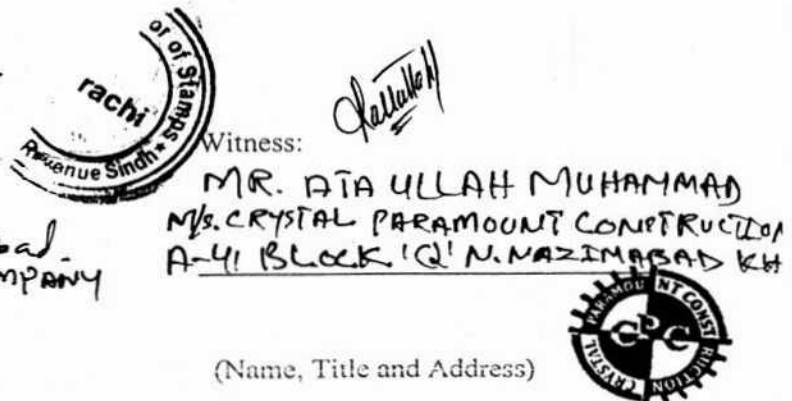 or of Stamps
rachi
Revenue Sindh *
Witness:
MR. ATA ULLAH MUHAMMAD
M/s. CRYSTAL PARAMOUNT CONSTRUCTION
A-41 BLOCK 'Q' N. NAZIMABAD KH
bad
MPANY
PARAMOUNT CONSTRUCTION CRYSTAL
CPC
(Name, Title and Address)